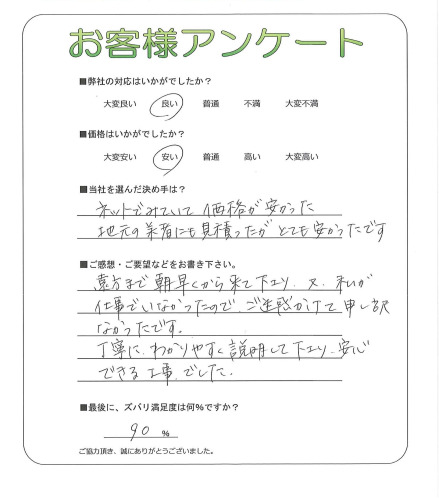 お客様アンケート
■弊社の対応はいかがでしたか？
大変良い 良い 普通 不満 大変不満
■価格はいかがでしたか？
大変安い 安い 普通 高い 大変高い
■当社を選んだ決め手は？
ネットでみていて 価格が安かった
地元の業者にも見積ったが とても安かったです
■ご感想・ご要望などをお書き下さい。
遠方まで 朝早くから来て下さり、又、私が
仕事でいなかったので、ご迷惑かけて申し訳
なかったです。
丁寧に、わかりやすく説明して下さり、安心
できる工事でした。
■最後に、ズバリ満足度は何%ですか？
90 %
ご協力頂き、誠にありがとうございました。